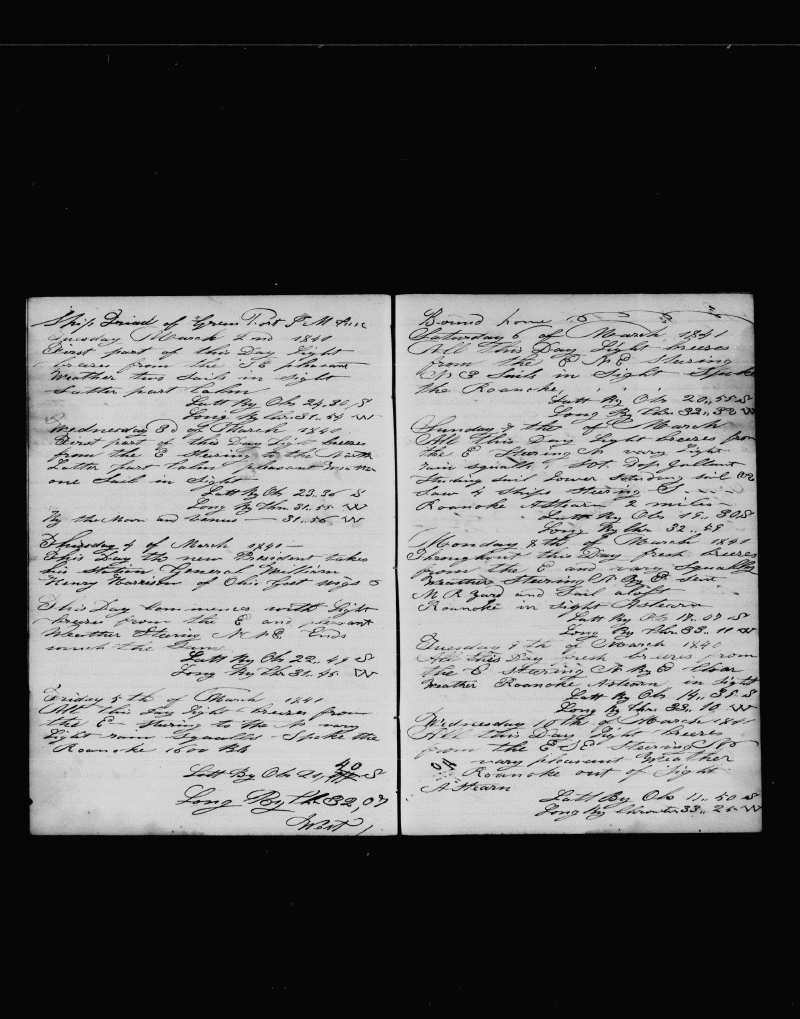 Ship Triad of Green Port
Tuesday March 2nd 1841
First part of this Day Light
breeses from the SE pleasant
Weather two Sails in Sight
Latter part Calm
Latt By Obs 24,30, S
Long By Chr 31.54 W
Wednesday 3d of March 1841
First part of this Day Light breeses
from the E Steering to the North
Latter part Calm pleasant Weather
one Sail in Sight
Latt By Obs 23.36 S
Long By Chr. 31.55 W
By the Moon and Venus — 31..56 W
Thursday 4 of March 1841 —
This Day the new President takes
his station General William
Henry Harrison of Ohio
This Day Commences with Light
breeses from the E and plesant
Weather Steering N NE Ends
much the Same
Latt By Obs 22..49 S
Long By Chr 31..45 W
Friday 5th of March 1841
All this day Light breeses from
the E Steering to the N vary
Light rain Squalls Spoke the
Roanoke 1600 Bb
Latt By Obs 21, 40 S
Long By Chr 32,07
West
Bound home
Saturday 6 of March 1841
All this Day Light breeses
from the E N E Steering
N 3 Sails in Sight Spoke
the Roanoke
Latt By Obs 20,,55 S
Long By Chr 32,,32 W
Sunday 7 the of March
All this Day Light breeses from
the E Steering N vary Light
rain squalls Top Gallant
Studing sail Lower Studing sail
Saw 4 Ships Steering S
Roanoke Astearn 2 miles
Latt By Obs 19..30 S
Long By Chr 32..49
Monday 8th of March 1841
Throughout this Day fresh breeses
from the E and vary Squally
Weather Steering N By E Sent
M R Yard and Sail aloft
Roanoke in Sight Astearn
Latt By Obs 17..07 S
Long By Chr 33..11 W
Tuesday 9th of March 1841
All this Day fresh breeses from
the E Steering N By E Clear
Weather Roanoke Astearn in Sight
Latt By Obs 14..35 S
Long By Chr 33..10 W
Wednesday 10th of March 1841
All this Day Light breeses
from the E SE Steering
vary pleasant Weather
Roanoke out of Sight
Astearn
Latt By Obs 11..50 S
Long By Chronter 33..26 W